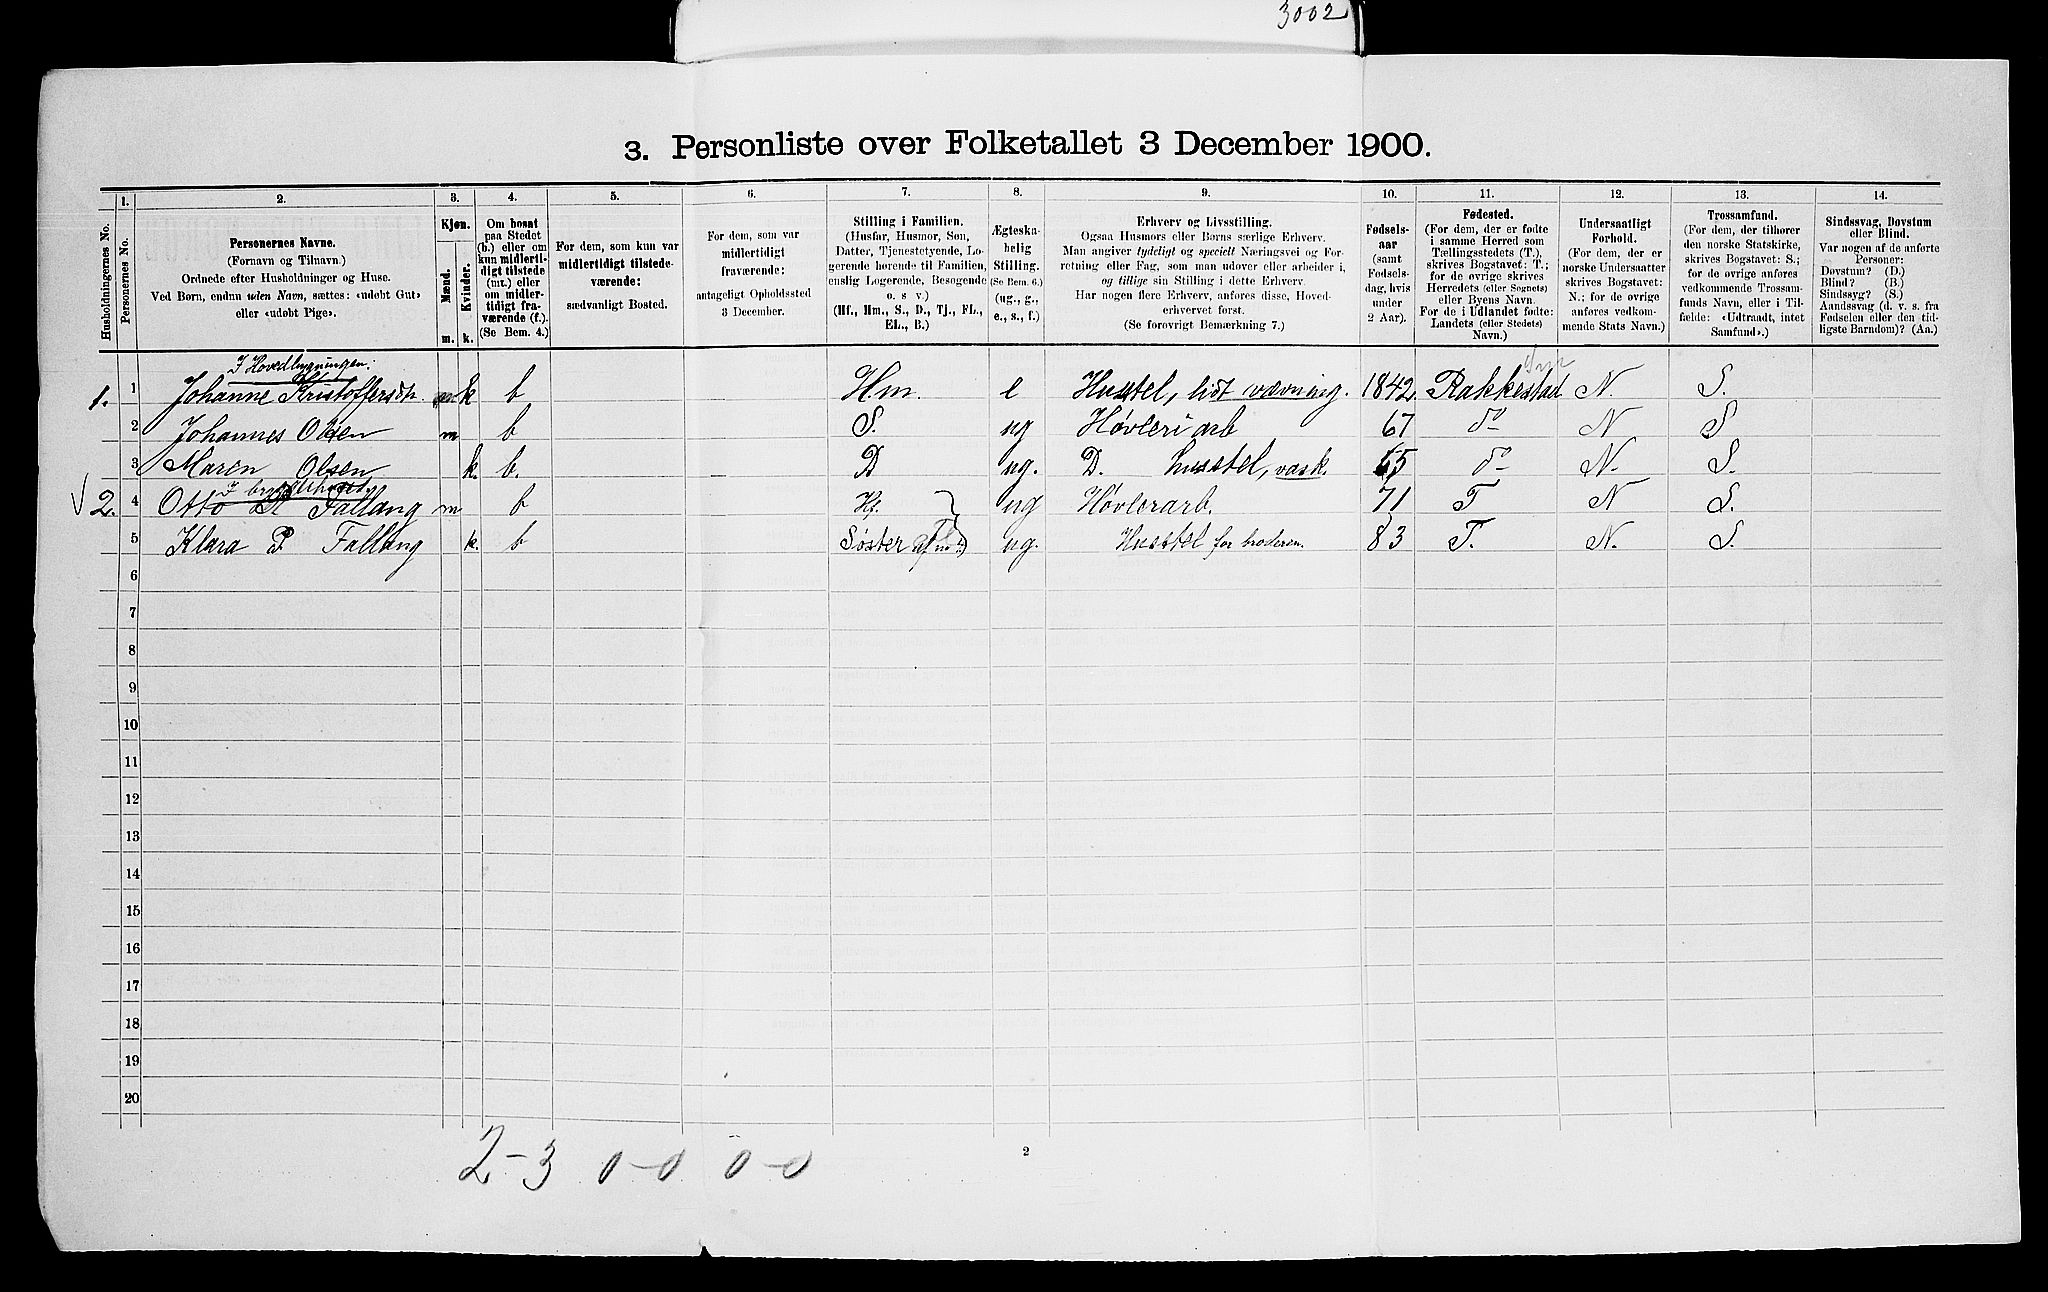 3002
3. Personliste over Folketallet 3 December 1900.
1. 2. 3. 4. 5. 6. 7. 8. 9. 10. 11. 12. 13. 14.
Husholdningernes No.
Personernes No.
Personernes Navne.
(Fornavn og Tilnavn.)
Ordnede efter Husholdninger og Huse.
Ved Børn, endnu uden Navn, sættes: «udøbt Gut»
eller «udøbt Pige».
Kjøn.
Mænd.
Kvinder.
m. k.
Om bosat
paa Stedet
(b.) eller om
kun midlerti-
digt tilstede
(mt.) eller
om midler-
tidigt fra-
værende (f.).
(Se Bem. 4.)
For dem, som kun var
midlertidigt tilstede-
værende:
sædvanligt Bosted.
For dem, som var
midlertidigt
fraværende:
antageligt Opholdssted
3 December.
Stilling i Familien.
(Husfar, Husmor, Søn,
Datter, Tjenestetyende, Lo-
gerende hørende til Familien,
enslig Logerende, Besøgende
o. s v.)
(Hf., Hm., S., D., Tj., FL.,
EL., B.)
Ægteska-
belig
Stilling.
(Se Bem. 6.)
(ug., g.,
e., s., f.)
Erhverv og Livsstilling.
Ogsaa Husmors eller Børns særlige Erhverv.
Man angiver tydeligt og specielt Næringsvei og For-
retning eller Fag, som man udover eller arbeider i,
og tillige sin Stilling i dette Erhverv.
Har nogen flere Erhverv, anføres disse, Hoved-
erhvervet først.
(Se forøvrigt Bemærkning 7.)
Fødsels-
aar
(samt
Fødsels-
dag, hvis
under
2 Aar).
Fødested.
(For dem, der er fødte
i samme Herred som
Tællingsstedets (T.),
skrives Bogstavet: T.;
for de øvrige skrives
Herredets (eller Sognets)
eller Byens Navn.
For de i Udlandet fødte:
Landets (eller Stedets)
Navn.)
Undersaatligt
Forhold.
(For dem, der er
norske Undersaatter
skrives Bogstavet:
N.; for de øvrige
anføres vedkom-
mende Stats Navn.)
Trossamfund.
(For dem, der tilhører
den norske Statskirke,
skrives Bogstavet: S.;
for de øvrige anføres
vedkommende Trossam-
funds Navn, eller i Til-
fælde: «Udtraadt, intet
Samfund».)
Sindssvag, Døvstum
eller Blind.
Var nogen af de anførte
Personer:
Døvstum? (D.)
Blind? (B.)
Sindssyg? (S.)
Aandssvag (d. v. s. fra
Fødselen eller den tid-
ligste Barndom)? (Aa.)
I Hovedbygningen:
1. 1 Johanne Kristoffersdtr. k b Hm. e Husstel, lidt vævning. 1842 Rakkestad N. S.
2 Johannes Olsen m b S. ug Høvleriarb 67 do N S
3 Maren Olsen k. b. D ug. D. husstel, vask. 65 do N. S.
2. 4 Otto Fallang m b Hf. ug Høvlerarb. 71 T N S.
5 Klara P. Fallang k. b Søster ug. Husstel for broderen. 83 T. N. S.
6
7
8
9
10
11
12
13
14
15
16
17
18
19
20
2-3 0-0 0-0
2